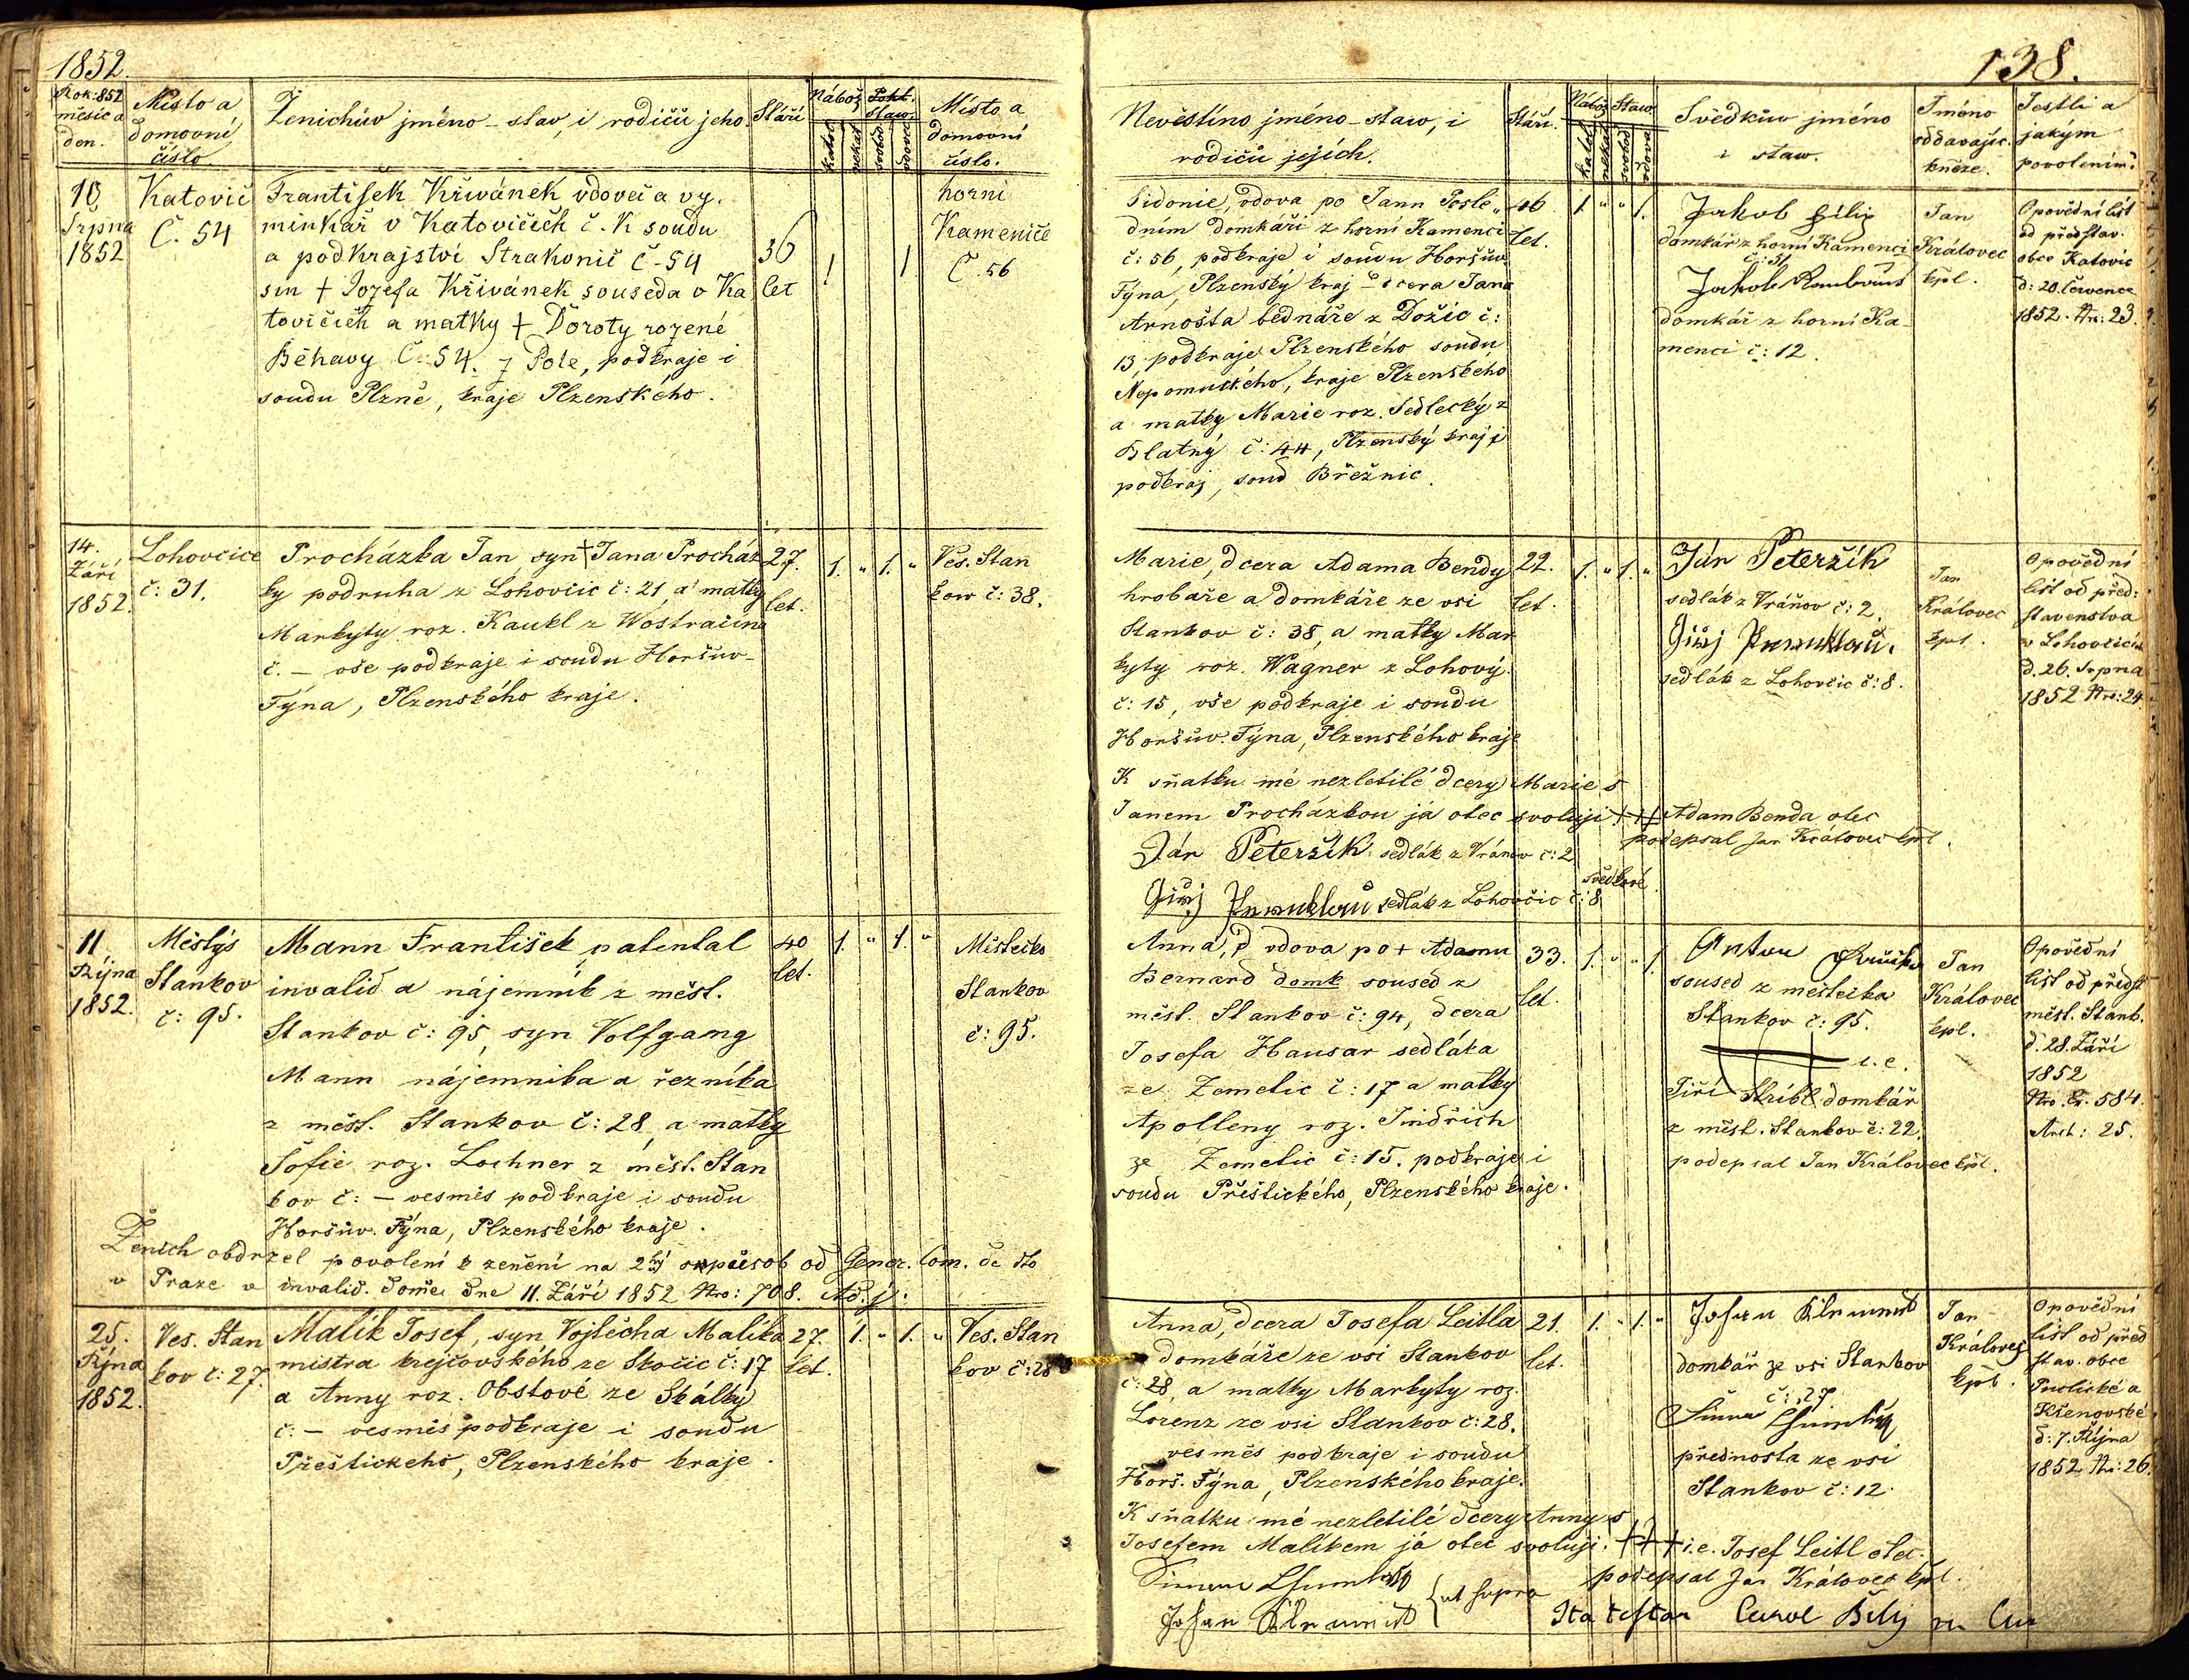 1852.
Rok: 852
měsíc a
den.
Místo a
domovní
číslo.
Ženichův jméno - stav, i rodičů jeho.
Stáří
Nábož.
katol.
nekat.
Staw.
svobod
vdovec
Místo a
domovní
číslo.
10
Srpna
1852
Katovič
Č. 54
František Křivánek vdovec a vy.
minkář v Katovičích č. K soudu
a podkrajství Strakonič č. 54
sin + Jozefa Křivánek souseda v Ka
tovičích a matky + Doroty rozené
Běhavy Č. 54. z Pole, podkraje i
soudu Plzně, kraje Plzenského.
36
let
1
1
horní
Kameniče
Č. 56
14.
Září
1852.
Lohovčice
č: 31.
Procházka Jan, syn + Jana Procház
ky podruha z Lohovčic č: 21, a matky
Markyty roz. Kaukl z Wostračína
č. — vše podkraje i soudu Horšův-
Týna, Plzenského kraje.
27.
let.
1. „ 1. „
Ves. Stan
kow č: 38.
11
Října
1852.
Městýs
Stankov
č: 95.
Mann František, patental
invalid a nájemník z měst.
Stankov č: 95, syn Volfgang
Mann nájemníka a řezníka
z měst. Stankov č: 28, a matky
Šofie roz. Lochner z měst. Stan
kov č: — vesměs podkraje i soudu
Horšův. Týna, Plzenského kraje.
40
let.
1. „ 1. „
Městečko
Stankov
č: 95.
Ženich obdržel povolení k ženění na 2hý spůsob od Gener. Com. de
v Praze v invalid. domě dne 11. Září 1852 Nro: 708.
25.
Října
1852.
Ves. Stan
kov č: 27.
Malík Josef, syn Vojtěcha Malíka
mistra krejčovského ze Skočic č: 17
a Anny roz. Obstové ze Skálky
č: — vesměs podkraje i soudu
Přeštického, Plzenského kraje.
27.
let.
1. „ 1. „
Ves. Stan
kov č: 28
138.
Nevěstíno jméno - staw, i
rodičů jejích.
Stáří.
Nábož
katol.
nekat
Staw.
svobod
vdova
Svědkův jméno
i staw.
Jméno
oddavajíc.
kněze.
Jestli a
jakým
povolením?
Sidonie, vdova po Jann Posle „
dním domkáři z horní Kamenci
č: 56, podkraje i soudu Horšův
Týna, Plzenský kraj – dcera Jana
Arnošta bednáře z Dožic č:
13, podkraje Plzenského soudu
Nepomuckého, kraje Plzenského
a matky Marie roz. Sedlecký z
Blatný č: 44, Plzenský kraj i
podkraj, soud Břežnic.
46
let.
1. „ „ 1.
Jakob Filip
domkář z horní Kamenci
č: 31
Jakob
domkář z horní Ka-
menci č: 12.
Jan
Královec
kpl.
Opovědní list
od představ.
obce Katovic
d: 20. července
1852. Nr: 23.
Marie, dcera Adama Bendy
hrobaře a domkáře ze vsi
Stankov č: 38, a matky Mar
kyty roz. Wagner z Lohový
č: 15, vše podkraje i soudu
Horšův. Týna, Plzenského kraje
22.
let.
1. „ 1. „
Ján Peteržík
sedlák z Vráňov č: 2
Giřj
sedlák z Lohovčic č: 8.
Jan
Královec
kpl.
Opovědní
list od před:
stavenstva
v Lohovčicích
d. 26. Srpna
1852 Nro: 24.
K sňatku mé nezletilé dcery Marie s
Janem Procházkou já otec svoluji +++ Adam Benda otec
podepsal Jan Královec kpl.
Ján Peteržík sedlák z Vránov č: 2
Giřj sedlák z Lohovčic č: 8
svědkové
Anna, vdova po + Adamu
Bernard domk soused z
měst. Stankov č: 94, dcera
Josefa Hausar sedláka
ze Zemetic č: 17 a matky
Apolleny roz. Jindřich
ze Zemetic č: 15. podkraje i
soudu Přeštického, Plzenského kraje.
33.
let.
1. „ „ 1.
Anton
soused z městečka
Stankov č: 95.
+++ i. e.
Jiří Stribl domkář
z měst. Stankov č: 22.
podepsal Jan Královec kpl.
Jan
Královec
kpl.
Opovědní
list od předst
měst. Stank.
d. 28. Září
1852
Nro. Ex. 584.
Arch: 25.
Anna, dcera Josefa Leitla
domkáře ze vsi Stankov
č: 28, a matky Markyty roz.
Lorenz ze vsi Stankov č: 28.
vesměs podkraje i soudu
Horš. Týna, Plzenského kraje.
21.
let.
1. „ 1. „
Johan
domkář ze vsi Stankov
č: 27
přednosta ze vsi
Stankov č: 12.
Jan
Královec
kpl.
Opovědní
list od před
stav. obce
Puclické a
Křenovské
d: 7. Října
1852 Nr: 26.
K sňatku mé nezletilé dcery Anny s
Josefem Malíkem já otec svoluji. +++ i. e. Josef Leitl otec.
podepsal Jan Královec kpl.
Johan
ut supra
Ita testor Carol Bílý